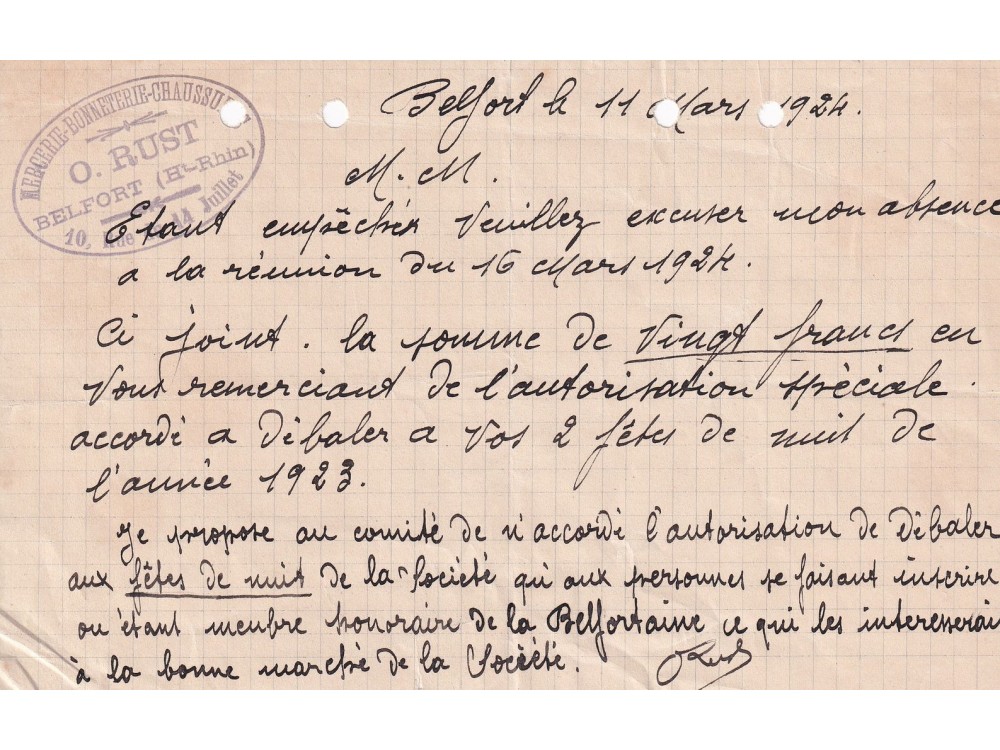 MERCERIE-BONNETERIE-CHAUSSU
O. RUST
BELFORT (Ht-Rhin)
10, Rue 14 Juillet
Belfort le 11 Mars 1924.
M.M.
Etant empêchér Veuillez excuser mon absence
a la réunion du 16 Mars 1924.
Ci joint. la somme de Vingt francs en
Vous remerciant de l'autorisation spéciale.
accordé a Débaler a Vos 2 fêtes de nuit de
l'année 1923.
Je propose au comité de n'accordé l'autorisation de Débaler
aux fêtes de nuit de la Société qu'aux personnes se faisant inscrire
ou étant menbre honoraire de la Belfortaine ce qui les interesserai
à la bonne marche de la Société.
ORust